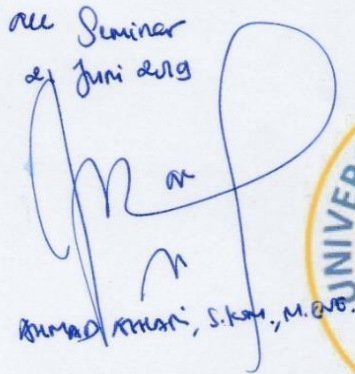 acc Seminar
21 Juni 2019
AHMAD ASHARI, S.Kom., M.ENG.
UNIVER